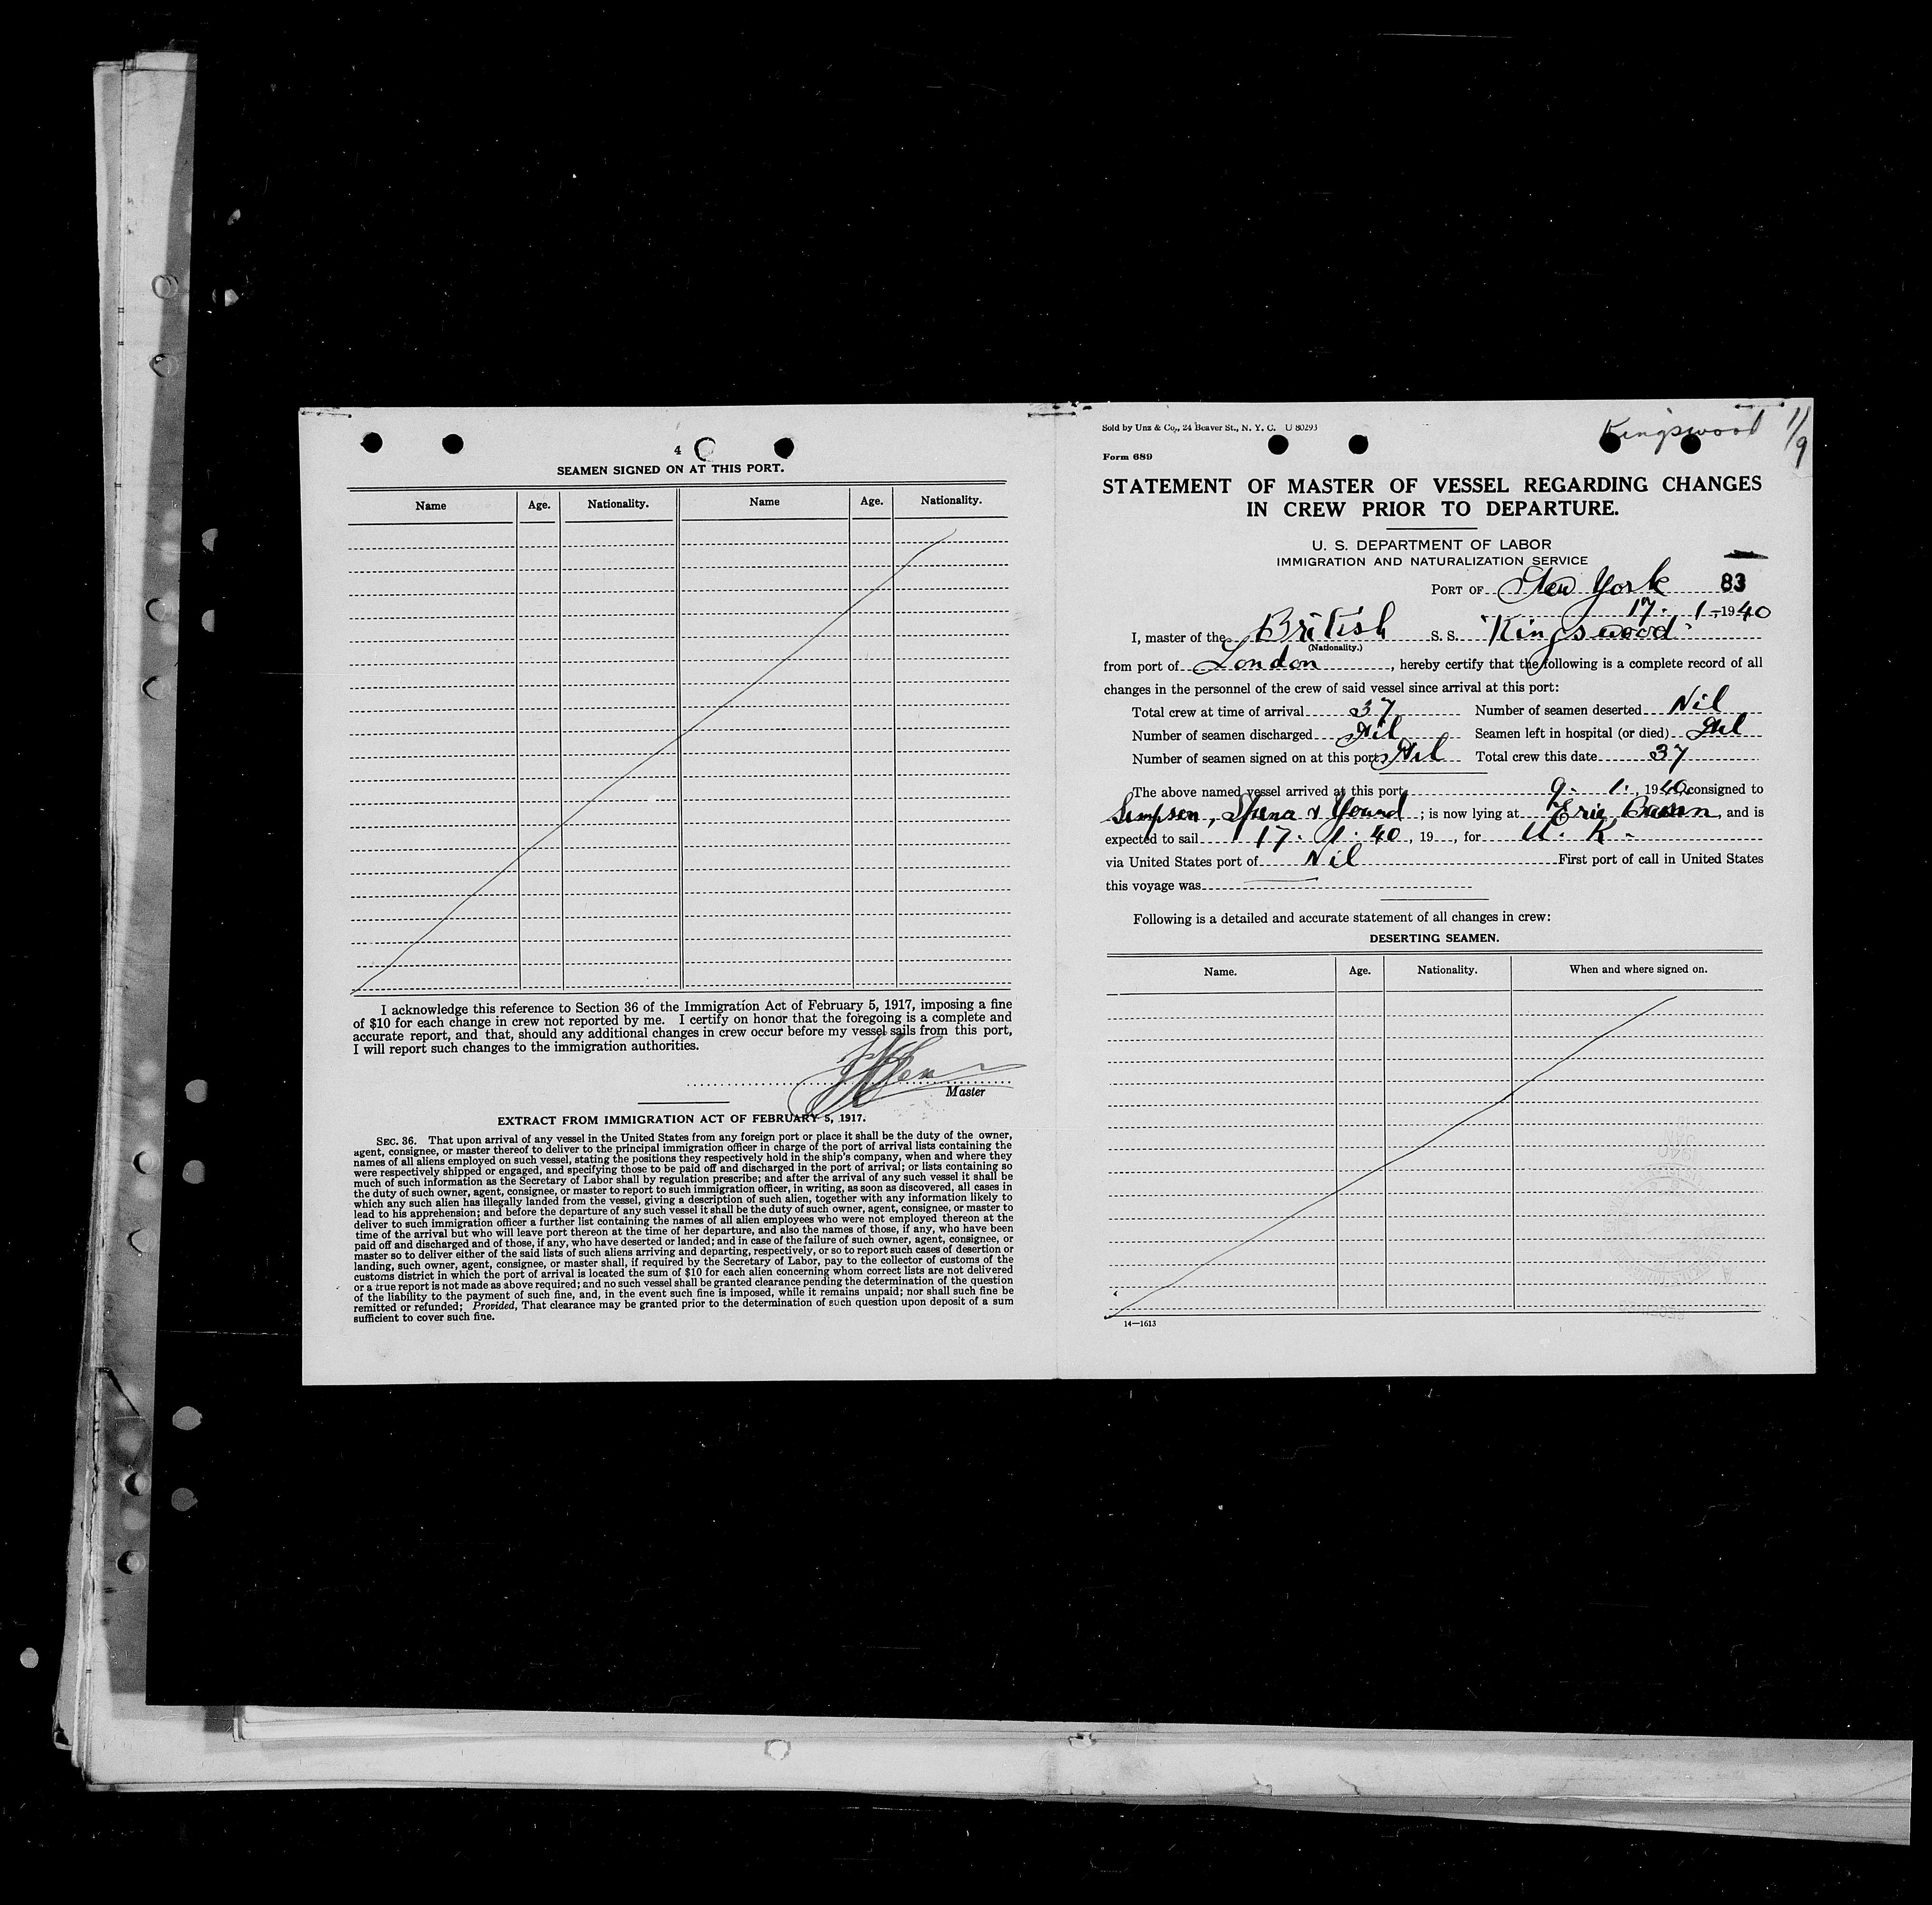 4
SEAMEN SIGNED ON AT THIS PORT.
Name Age. Nationality. Name Age. Nationality.
I acknowledge this reference to Section 36 of the Immigration Act of February 5, 1917, imposing a fine
of $10 for each change in crew not reported by me. I certify on honor that the foregoing is a complete and
accurate report, and that, should any additional changes in crew occur before my vessel sails from this port,
I will report such changes to the immigration authorities.
Master
EXTRACT FROM IMMIGRATION ACT OF FEBRUARY 5, 1917.
SEC. 36. That upon arrival of any vessel in the United States from any foreign port or place it shall be the duty of the owner,
agent, consignee, or master thereof to deliver to the principal immigration officer in charge of the port of arrival lists containing the
names of all aliens employed on such vessel, stating the positions they respectively hold in the ship's company, when and where they
were respectively shipped or engaged, and specifying those to be paid off and discharged in the port of arrival; or lists containing so
much of such information as the Secretary of Labor shall by regulation prescribe; and after the arrival of any such vessel it shall be
the duty of such owner, agent, consignee, or master to report to such immigration officer, in writing, as soon as discovered, all cases in
which any such alien has illegally landed from the vessel, giving a description of such alien, together with any information likely to
lead to his apprehension; and before the departure of any such vessel it shall be the duty of such owner, agent, consignee, or master to
deliver to such immigration officer a further list containing the names of all alien employees who were not employed thereon at the
time of the arrival but who will leave port thereon at the time of her departure, and also the names of those, if any, who have been
paid off and discharged and of those, if any, who have deserted or landed; and in case of the failure of such owner, agent, consignee, or
master so to deliver either of the said lists of such aliens arriving and departing, respectively, or so to report such cases of desertion or
landing, such owner, agent, consignee, or master shall, if required by the Secretary of Labor, pay to the collector of customs of the
customs district in which the port of arrival is located the sum of $10 for each alien concerning whom correct lists are not delivered
or a true report is not made as above required; and no such vessel shall be granted clearance pending the determination of the question
of the liability to the payment of such fine, and, in the event such fine is imposed, while it remains unpaid; nor shall such fine be
remitted or refunded; Provided, That clearance may be granted prior to the determination of such question upon deposit of a sum
sufficient to cover such fine.
Sold by Unz & Co., 24 Beaver St., N. Y. C. U 80293
Kingswood 1/9
Form 689
STATEMENT OF MASTER OF VESSEL REGARDING CHANGES
IN CREW PRIOR TO DEPARTURE.
U. S. DEPARTMENT OF LABOR
IMMIGRATION AND NATURALIZATION SERVICE
PORT OF New York 83
17. 1-, 1940
I, master of the British S. S. "Kingswood"
(Nationality.)
from port of London, hereby certify that the following is a complete record of all
changes in the personnel of the crew of said vessel since arrival at this port:
Total crew at time of arrival 37 Number of seamen deserted Nil
Number of seamen discharged Nil Seamen left in hospital (or died) Nil
Number of seamen signed on at this port Nil Total crew this date 37
The above named vessel arrived at this port 9. 1., 1940, consigned to
Simpson, Spence & Young; is now lying at Erie Basin, and is
expected to sail 17. 1. 40, 19 , for U. K.
via United States port of Nil First port of call in United States
this voyage was
Following is a detailed and accurate statement of all changes in crew:
DESERTING SEAMEN.
Name. Age. Nationality. When and where signed on.
14—1613